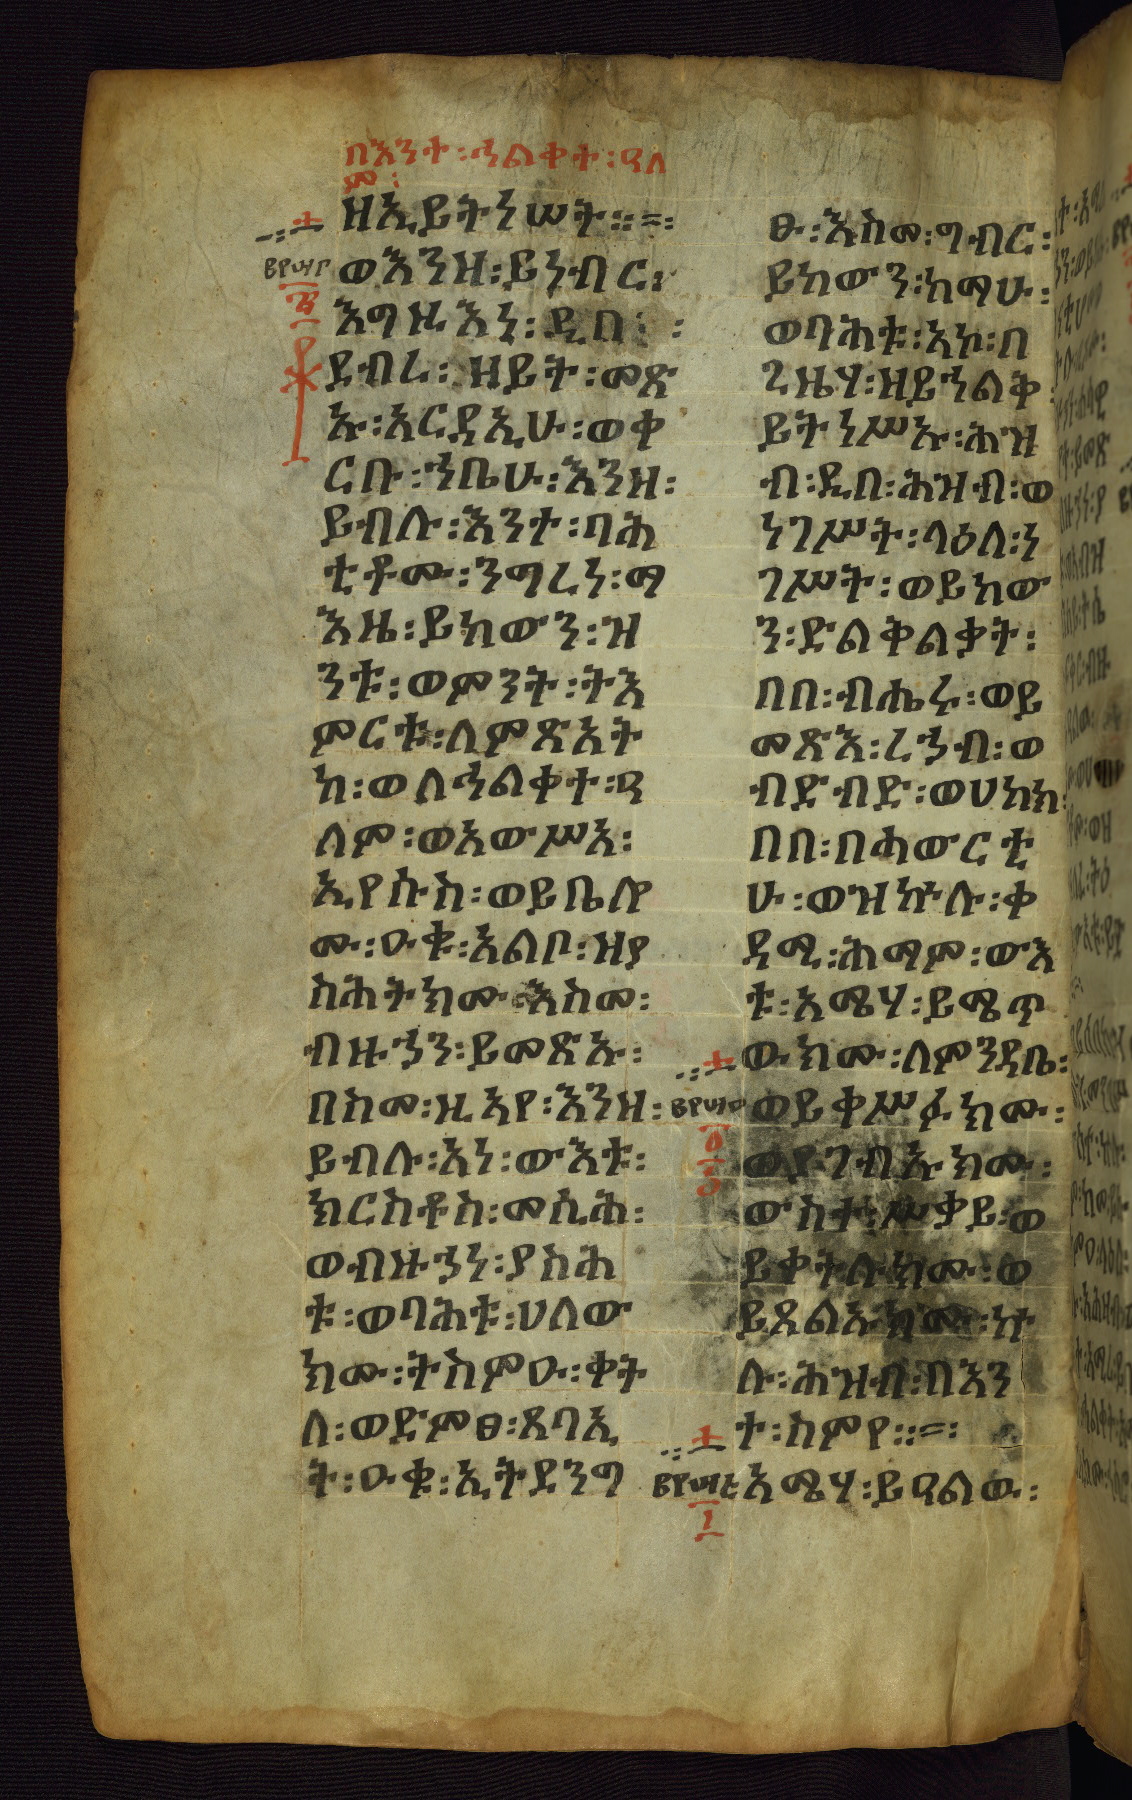 በእንተ፡ኅልቀተ፡ዓለ
ም፡
ዘኢይትነሠት፡፡=፡
ወእንዘ፡ይነብር፡
እግዚእነ፡ዲበ፡
ደብረ፡ዘይት፡መጽ
ኡ፡አርዳኢሁ፡ወቀ
ርቡ፡ኀቤሁ፡እንዘ፡
ይብሉ፡እንተ፡ባሕ
ቲቶሙ፡ንግረነ፡ማ
እዜ፡ይከውን፡ዝ
ንቱ፡ወምንት፡ትእ
ምርቱ፡ለምጽአት
ከ፡ወለኅልቀተ፡ዓ
ለም፡ወአውሥአ፡
ኢየሱስ፡ወይቤሎ
ሙ፡ዑቁ፡አልቦ፡ዘያ
ስሕትክሙ፡እስመ፡
ብዙኃን፡ይመጽኡ፡
በስመ፡ዚአየ፡እንዘ፡
ይብሉ፡አነ፡ውእቱ፡
ክርስቶስ፡መሲሕ፡
ወብዙኃነ፡ያስሕ
ቱ፡ወባሕቱ፡ሀለው
ክሙ፡ትስምዑ፡ቀት
ለ፡ወድምፀ፡ጸባኢ
ት፡ዑቁ፡ኢትደንግ
ፁ፡እስመ፡ግብር፡
ይከውን፡ከማሁ፡
ወባሕቱ፡አኮ፡በ
ጊዜሃ፡ዘይኀልቅ፡
ይትነሥኡ፡ሕዝ
ብ፡ዲበ፡ሕዝብ፡ወ
ነገሥት፡ላዕለ፡ነ
ገሥት፡ወይከው
ን፡ድልቅልቃት፡
በበ፡ብሔሩ፡ወይ
መጽእ፡ረኃብ፡ወ
ብድብድ፡ወሀከክ፡
በበ፡በሓውርቲ
ሁ፡ወዝኵሉ፡ቀ
ዳሚ፡ሕማም፡ውእ
ቱ፡አሜሃ፡ይሜጥ
ውክሙ፡ለምንዳቤ፡
ወይቀሥፉክሙ፡
ወያገብኡክሙ፡
ውስተ፡ሥቃይ፡ወ
ይቀትሉክሙ፡ወ
ይጸልኡክሙ፡ኵ
ሉ፡ሕዝብ፡በእን
ተ፡ስምየ፡፡=፡
አሜሃ፡ይዓልዉ፡